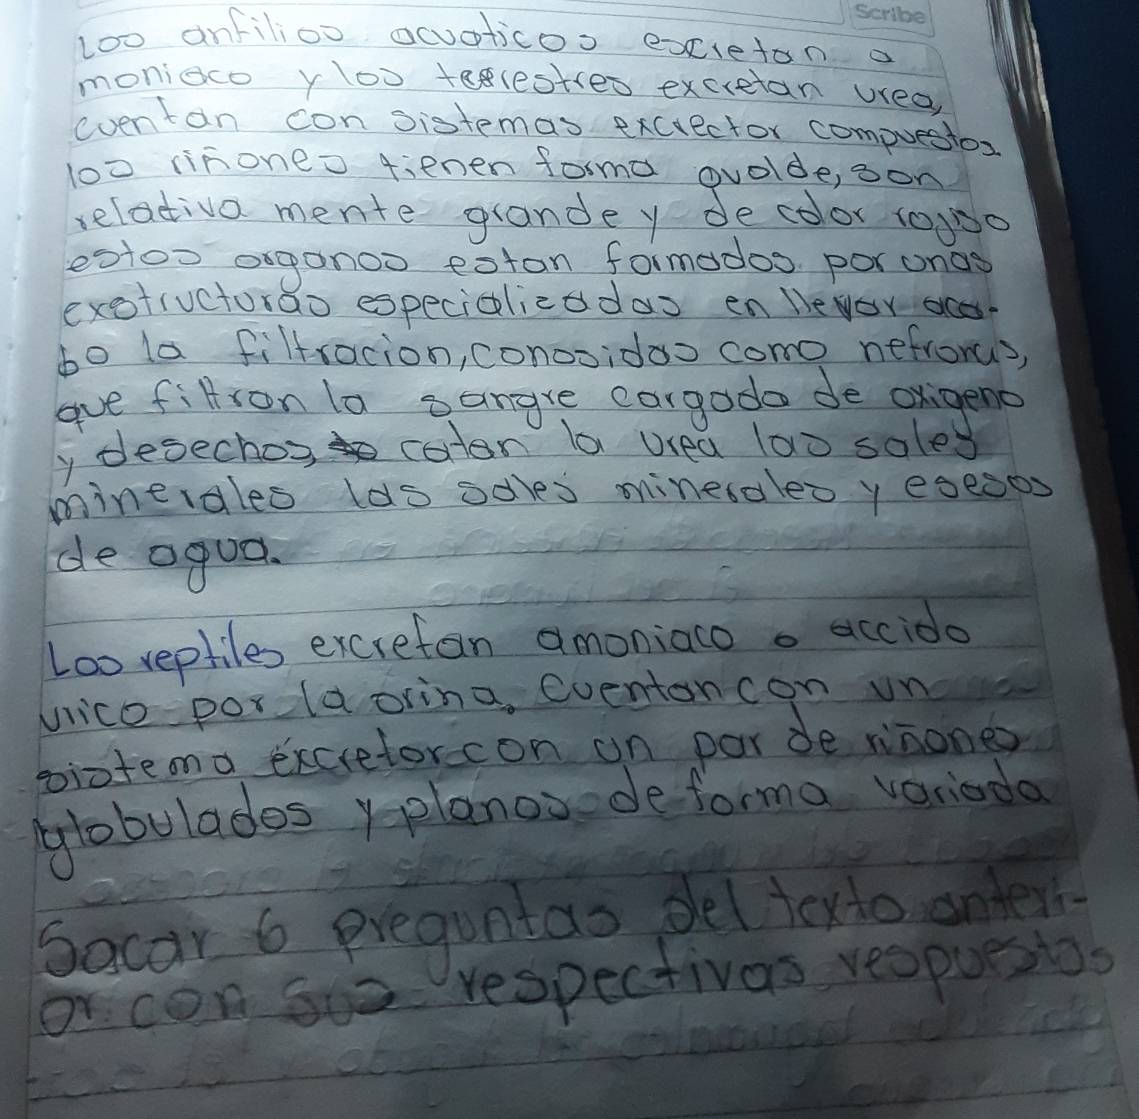 Scribe
Los anfilios acuaticos excretan a
moniaco y los terrestres excretan urea,
cuentan con sistemas excrector compuestos
los riñones tienen forma ovalde, son
relativa mente grande y de color rojiso
estos organos estan formados por unas
exstructuras especializadas en llevar aca-
bo la filtracion, conosidas como nefronas,
que filtran la sangre cargada de oxigeno
y desechos, catan la urea las sales
minerales las sales minerales y esesos
de agua.
Los reptiles excretan amoniaco o accido
urico por la orina. Cuentan con un
sistema excretor con un par de riñones
globulados y planos de forma variada
Sacar 6 preguntas del texto anteri-
or con sus respectivas respuestas